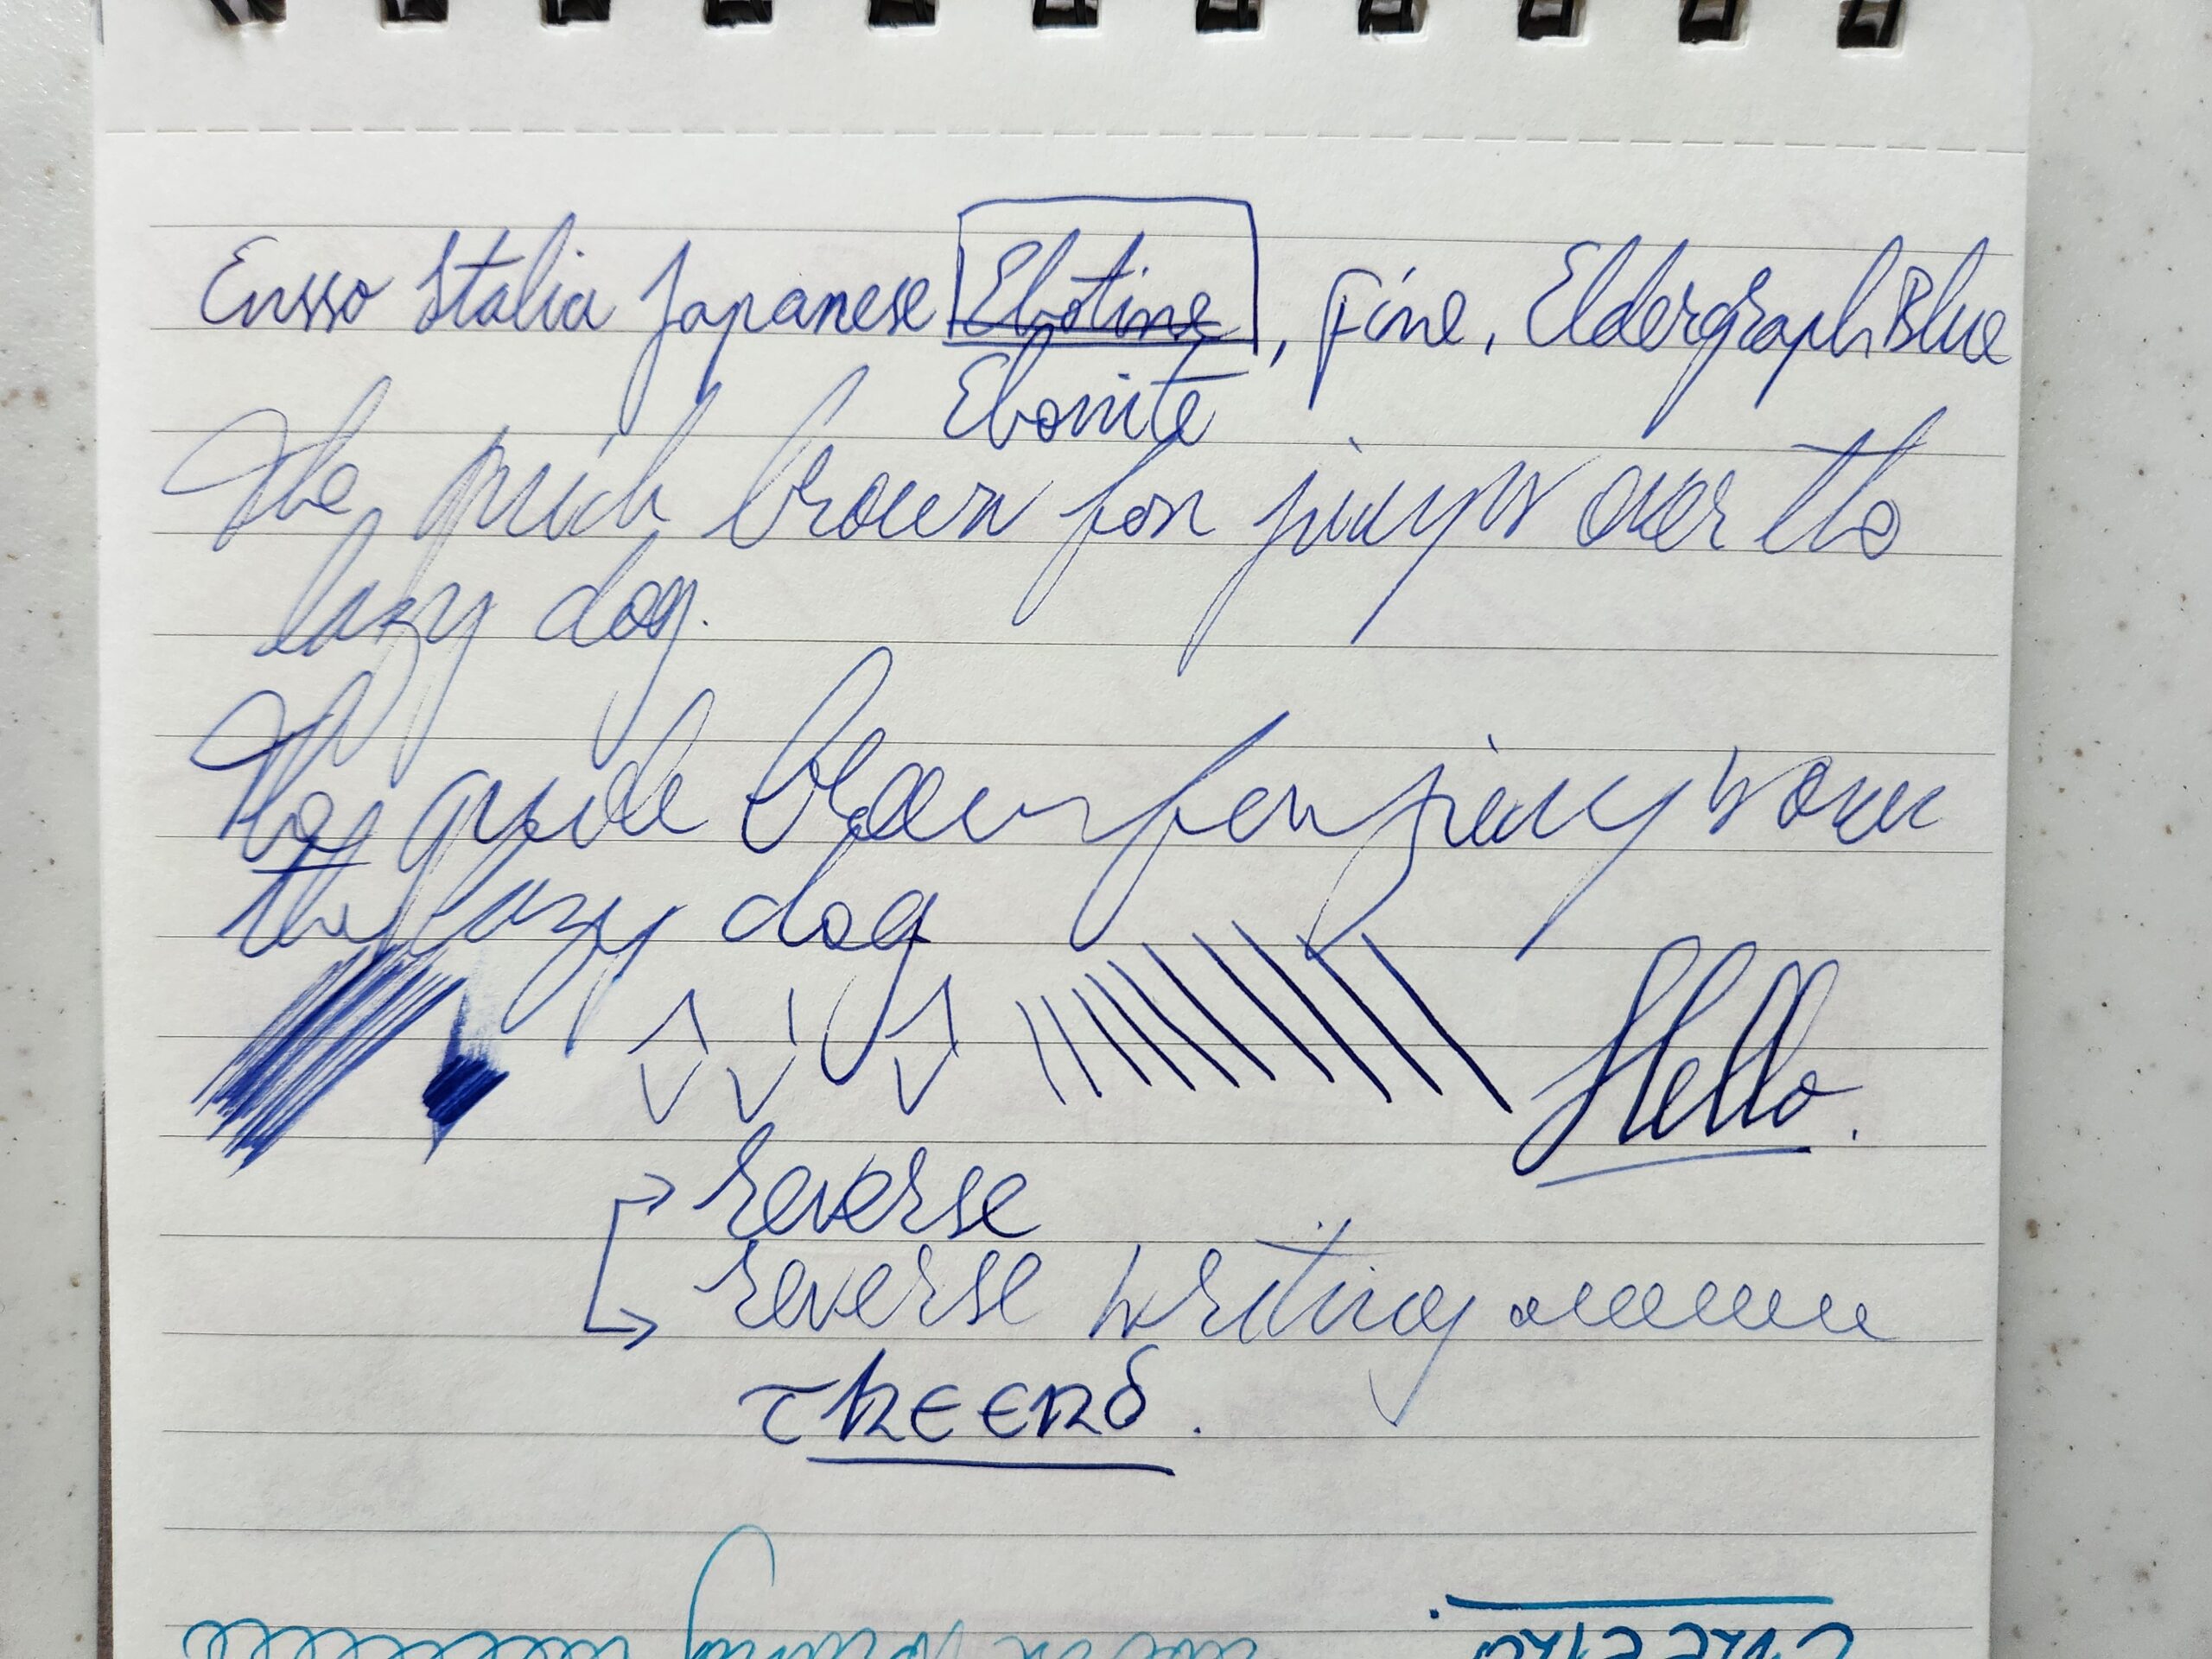 Ensso Italia Japanese Ebotine, Fine, Eldergraph Blue
Ebonite
The quick brown fox jumps over the
lazy dog.
The quick brown fox jumps over
the lazy dog
Hello.
reverse
reverse writing
The end.